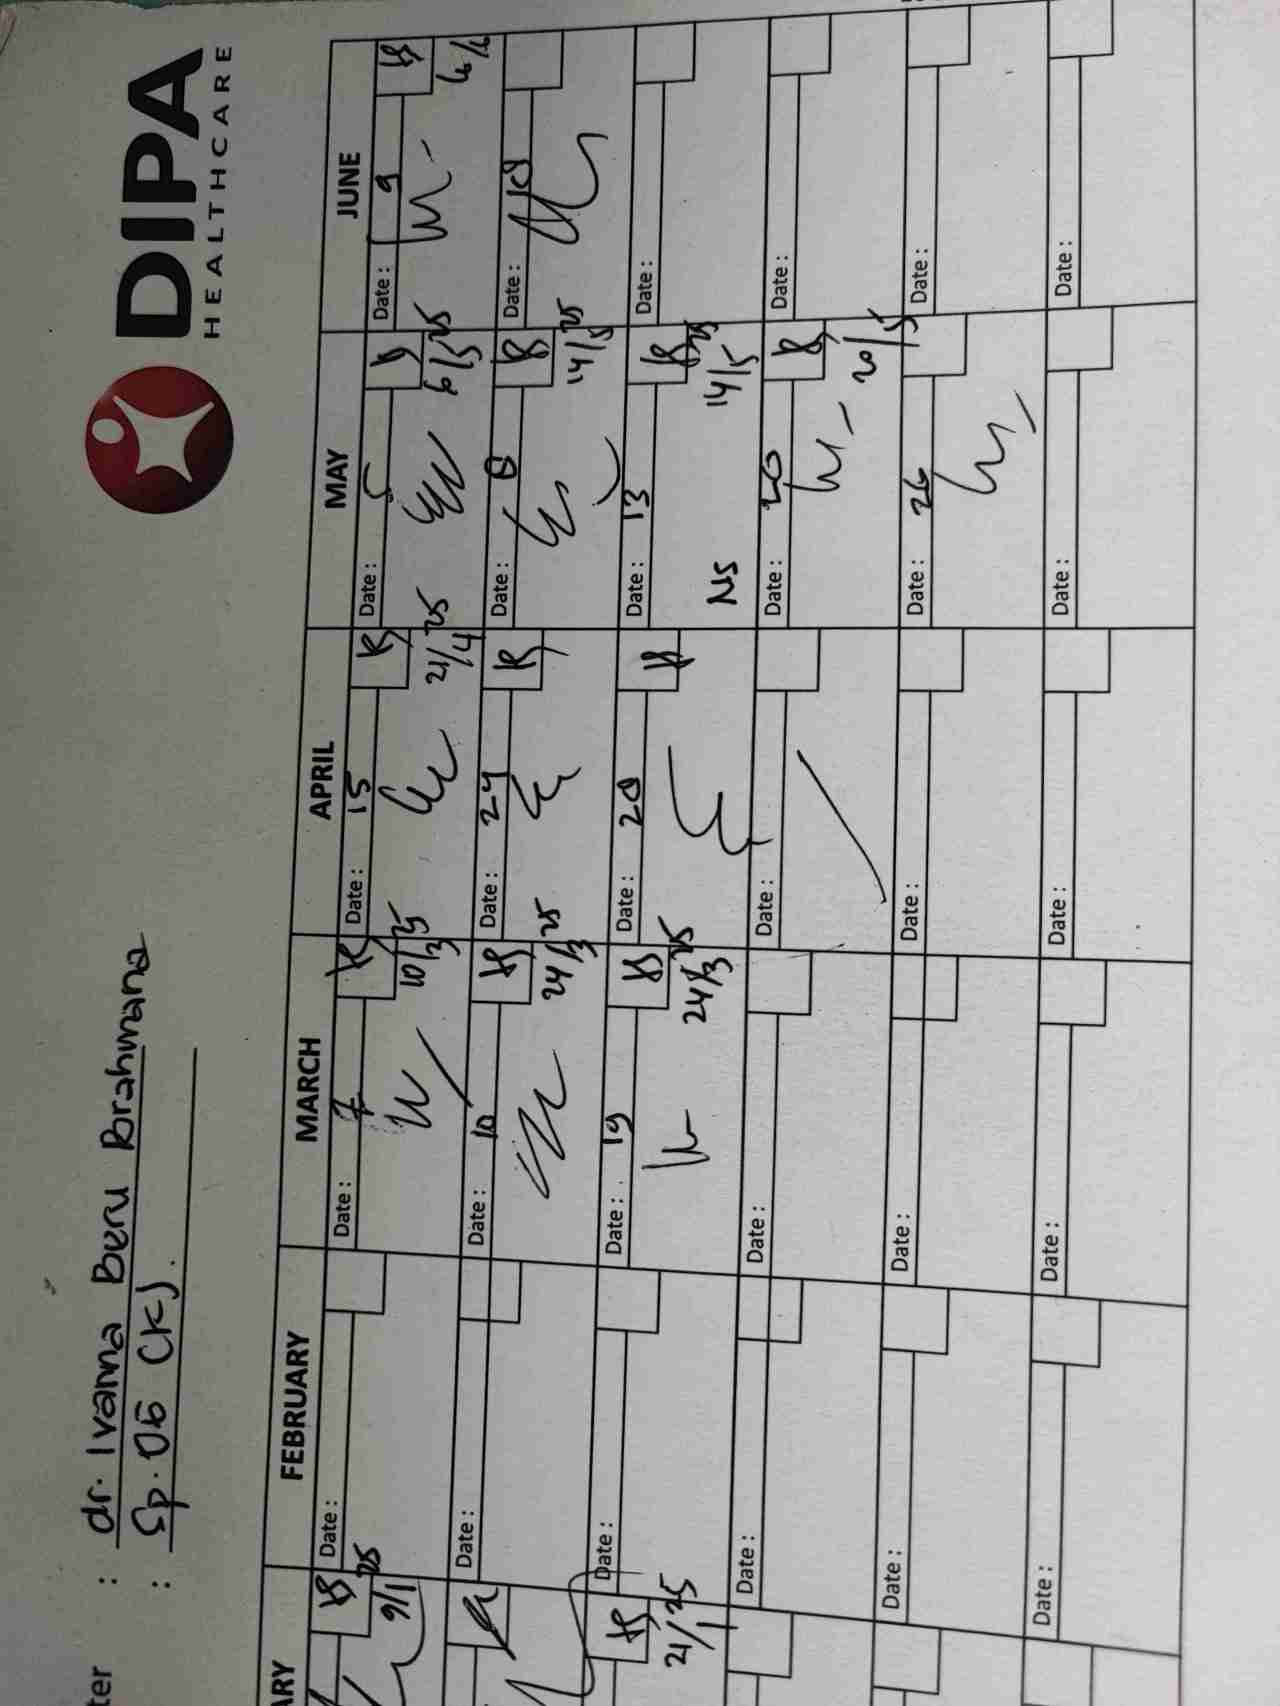 DIPA
HEALTHCARE
ter : dr. Ivanna Beru Brahmana
: Sp. OG (K).
ARY FEBRUARY MARCH APRIL MAY JUNE
9/1 25 Date : Date : 7 10/3 25 Date : 15 21/4 25 Date : 5 6/5 25 Date : 9
Date : Date : 10 24/3 25 Date : 24 Date : 8 14/5 25 Date :
21/1 25 Date : Date : 19 24/3 25 Date : 28 Date : 13 NS 14/5 25 Date :
Date : Date : Date : Date : 20 20/5 Date :
Date : Date : Date : Date : 26 Date :
Date : Date : Date : Date : Date :